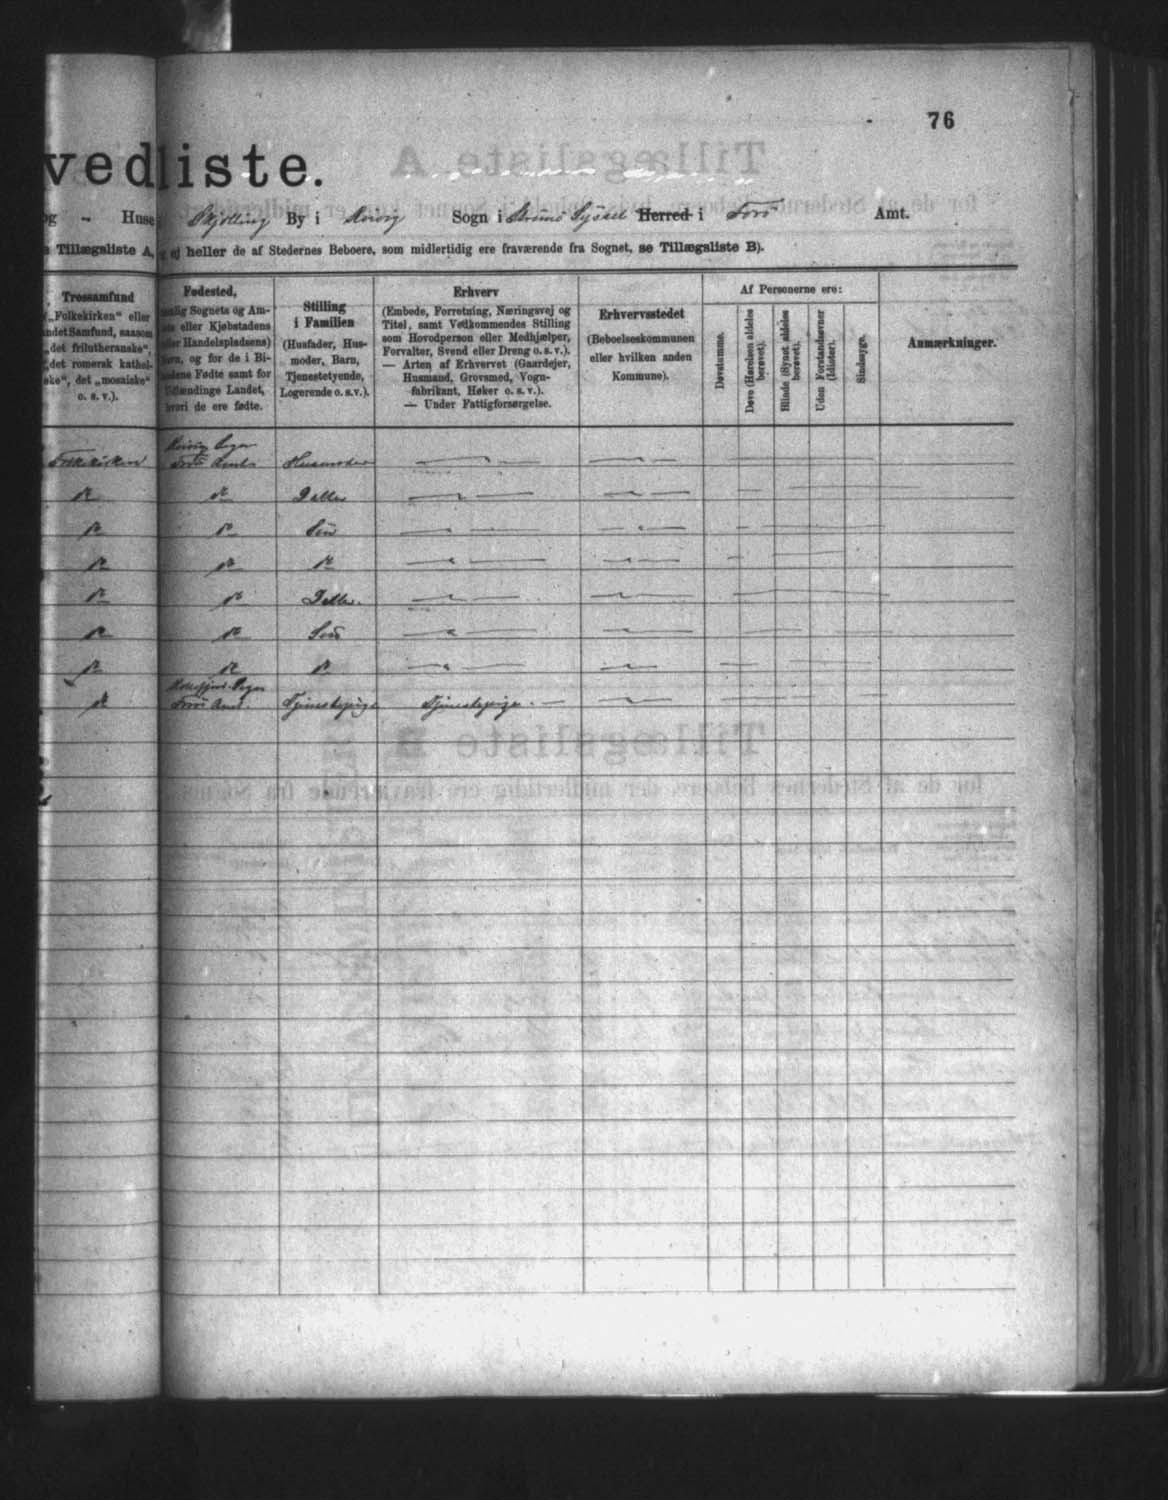 76
vedliste.
og - Huse Skjelling By i Kvivig Sogn i Strømø Syssel Herred i Færø Amt.
Tillægsliste A, og ej heller de af Stedernes Beboere, som midlertidig ere fraværende fra Sognet, se Tillægsliste B).
Trossamfund
(„Folkekirken“ eller
andet Samfund, saasom
„det frilutheranske“,
„det romersk kathol-
ske“, det „mosaiske“
o. s. v.).
Fødested,
nemlig Sognets og Am-
tets eller Kjøbstadens
(eller Handelspladsens)
Navn, og for de i Bi-
landene Fødte samt for
Udlændinge Landet,
hvori de ere fødte.
Stilling
i Familien
(Husfader, Hus-
moder, Barn,
Tjenestetyende,
Logerende o. s. v.).
Erhverv
(Embede, Forretning, Næringsvej og
Titel, samt Vedkommendes Stilling
som Hovedperson eller Medhjælper,
Forvalter, Svend eller Dreng o. s. v.).
— Arten af Erhvervet (Gaardejer,
Husmand, Grovsmed, Vogn-
fabrikant, Høker o. s. v.).
— Under Fattigforsørgelse.
Erhvervsstedet
(Beboelseskommunen
eller hvilken anden
Kommune).
Af Personerne ere:
Døvstumme.
Døve (Hørelsen aldeles
berøvet).
Blinde (Synet aldeles
berøvet).
Uden Forstandsevner
(Idioter).
Sindssyge.
Anmærkninger.
Kvivig Sogn
Folkekirken Færø Amt Husmoder
dt dt Datter
dt dt Søn
dt dt dt
dt dt Datter
dt dt Søn
dt dt dt
Sogn
dt Færø Amt Tjenestepige Tjenestepige